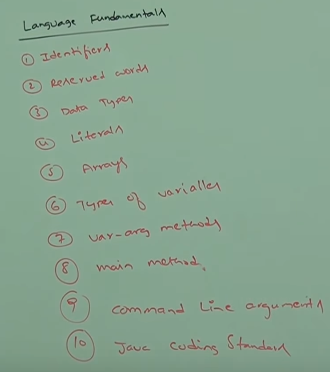 Language Fundamentals
① Identifiers
② Reserved words
③ Data Types
④ Literals
⑤ Arrays
⑥ Types of variables
⑦ var-arg methods
⑧ main method.
⑨ command line arguments
⑩ Java coding Standard